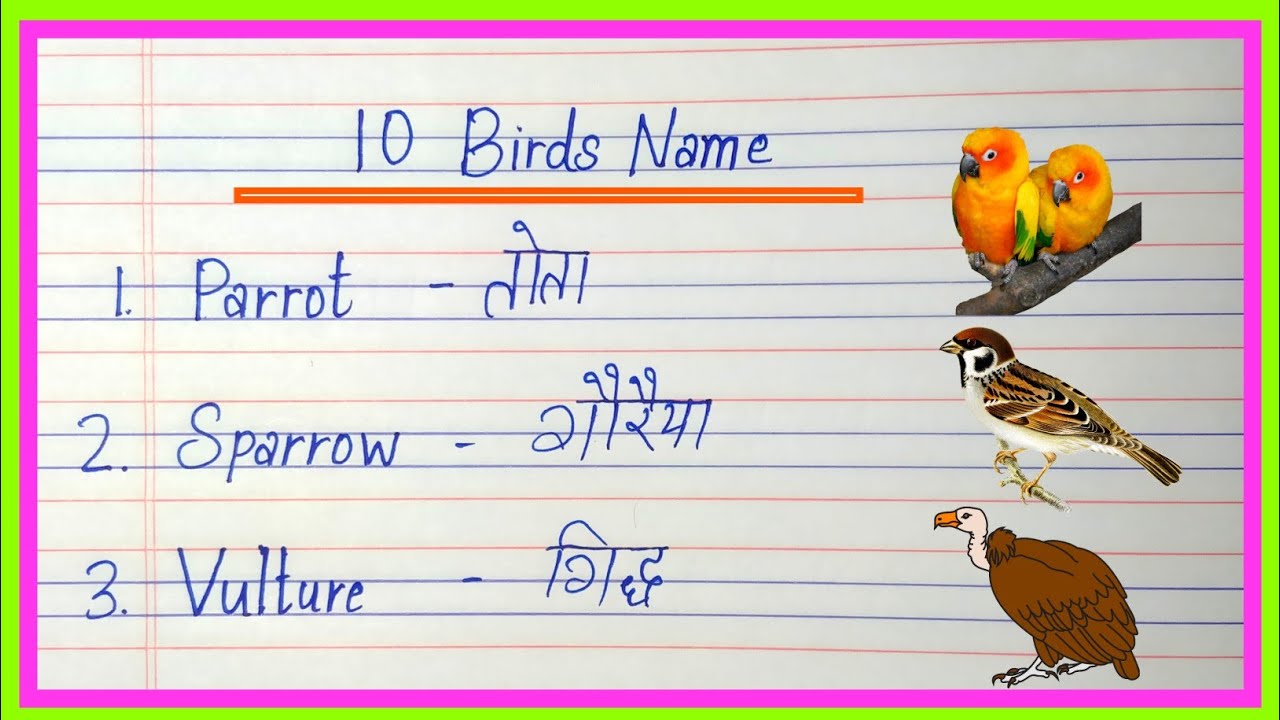 10 Birds Name
1. Parrot - तोता
2. Sparrow - गौरैया
3. Vulture - गिद्ध